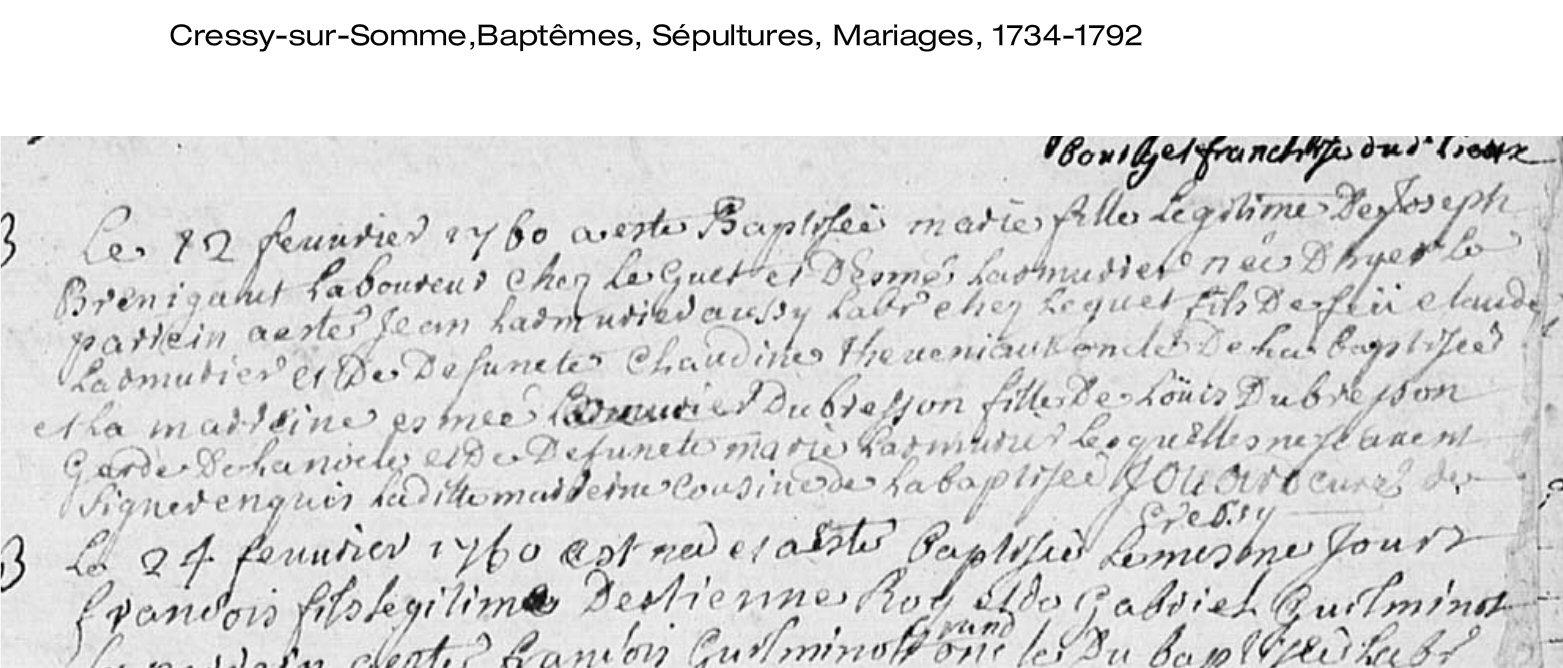 Cressy-sur-Somme,Baptêmes, Sépultures, Mariages, 1734-1792
Bourg et franchise dud. lieux
B
Le 12 feuurier 1760 a esté Baptisée marie fille Legitime De Joseph
Brenigaut Laboureur chez Le Guet et D'Esmé Lasmurier née D'hyer le
parrein a esté Jean Lasmurier aussy Labr chez Le guet fils De feü claude
Lasmurier et De Defuncte Claudine theueniaut oncle De La baptisée
et La marreine esmée Dubresson fille De Loüis Dubresson
Garde De et De Defuncte marie Lasmurier Lesquelles ne sçauent
signer enquis laditte marreine cousine de La baptisée curé de
Cressy
B
Le 24 feuurier 1760 est né et a esté baptisé Le mesme Jour
francois fils legitime D'estienne Roy et de Gabriel Guilminot
Le parrein a esté francois Guilminot grand oncle Du baptisé Labr